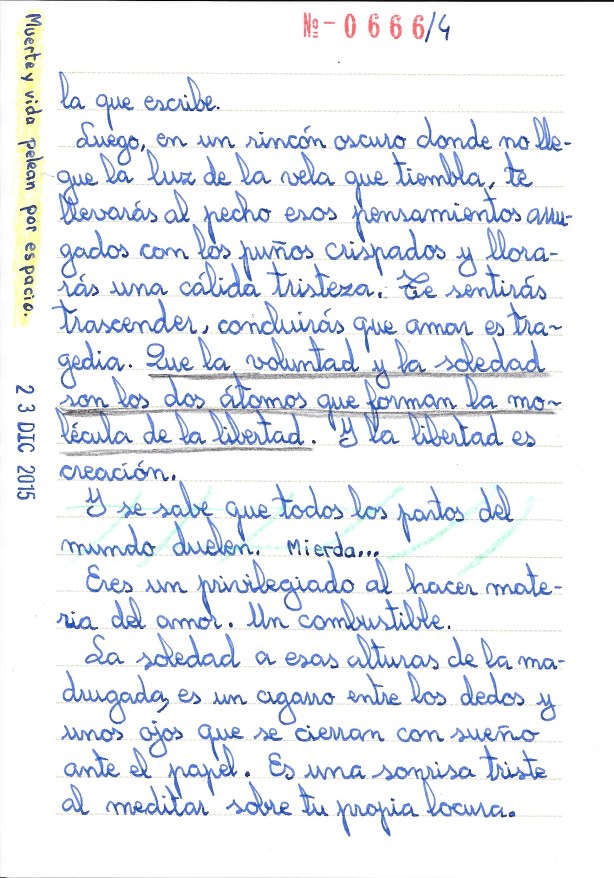 Nº-0666/4
la que escribe.
Luego, en un rincón oscuro donde no lle-
gue la luz de la vela que tiembla, te
llevarás al pecho esos pensamientos arru-
gados con los puños crispados y llora-
rás una cálida tristeza. Te sentirás
trascender, concluirás que amar es tra-
gedia. Que la voluntad y la soledad
son los dos átomos que forman la mo-
lécula de la libertad. Y la libertad es
creación.
Y se sabe que todos los partos del
mundo duelen. Mierda...
Eres un privilegiado al hacer mate-
ria del amor. Un combustible.
La soledad a esas alturas de la ma-
drugada, es un cigarro entre los dedos y
unos ojos que se cierran con sueño
ante el papel. Es una sonrisa triste
al meditar sobre tu propia locura.
Muerte y vida pelean por espacio.
23 DIC 2015